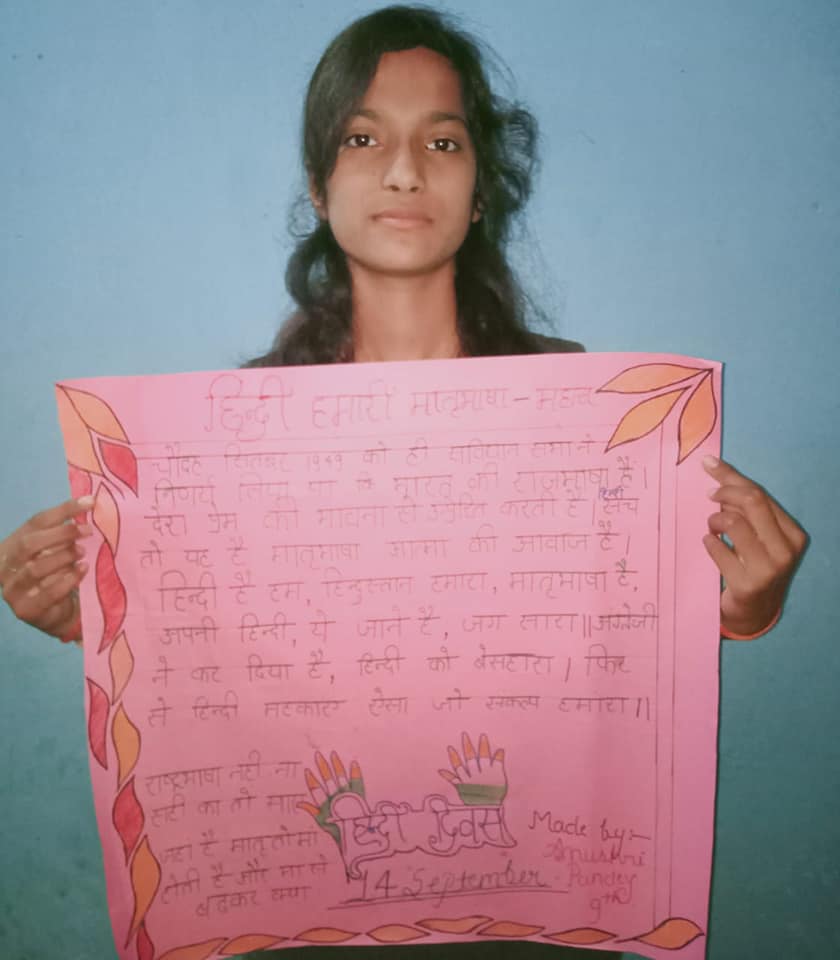 हिन्दी हमारी मातृभाषा - महान
चौदह सितम्बर 1949 को ही संविधान सभा ने
निर्णय लिया था कि भारत की राजभाषा है।
देश प्रेम की भावना से करती है। हिन्दी सच
तो यह है मातृभाषा आत्मा की आवाज है।
हिन्दी है हम, हिन्दुस्तान हमारा, मातृभाषा है,
अपनी हिन्दी, ये जाने है, जग सारा॥ अंग्रेजी
ने कर दिया है, हिन्दी को बेसहारा। फिर
से हिन्दी ऐसा जो संकल्प हमारा॥
राष्ट्रभाषा नही ना
सही का तो
है मातृ तो मां
होती है और मां से
बढकर क्या
हिन्दी दिवस
14 September
Made by:-
Anushri
Pandey
9th